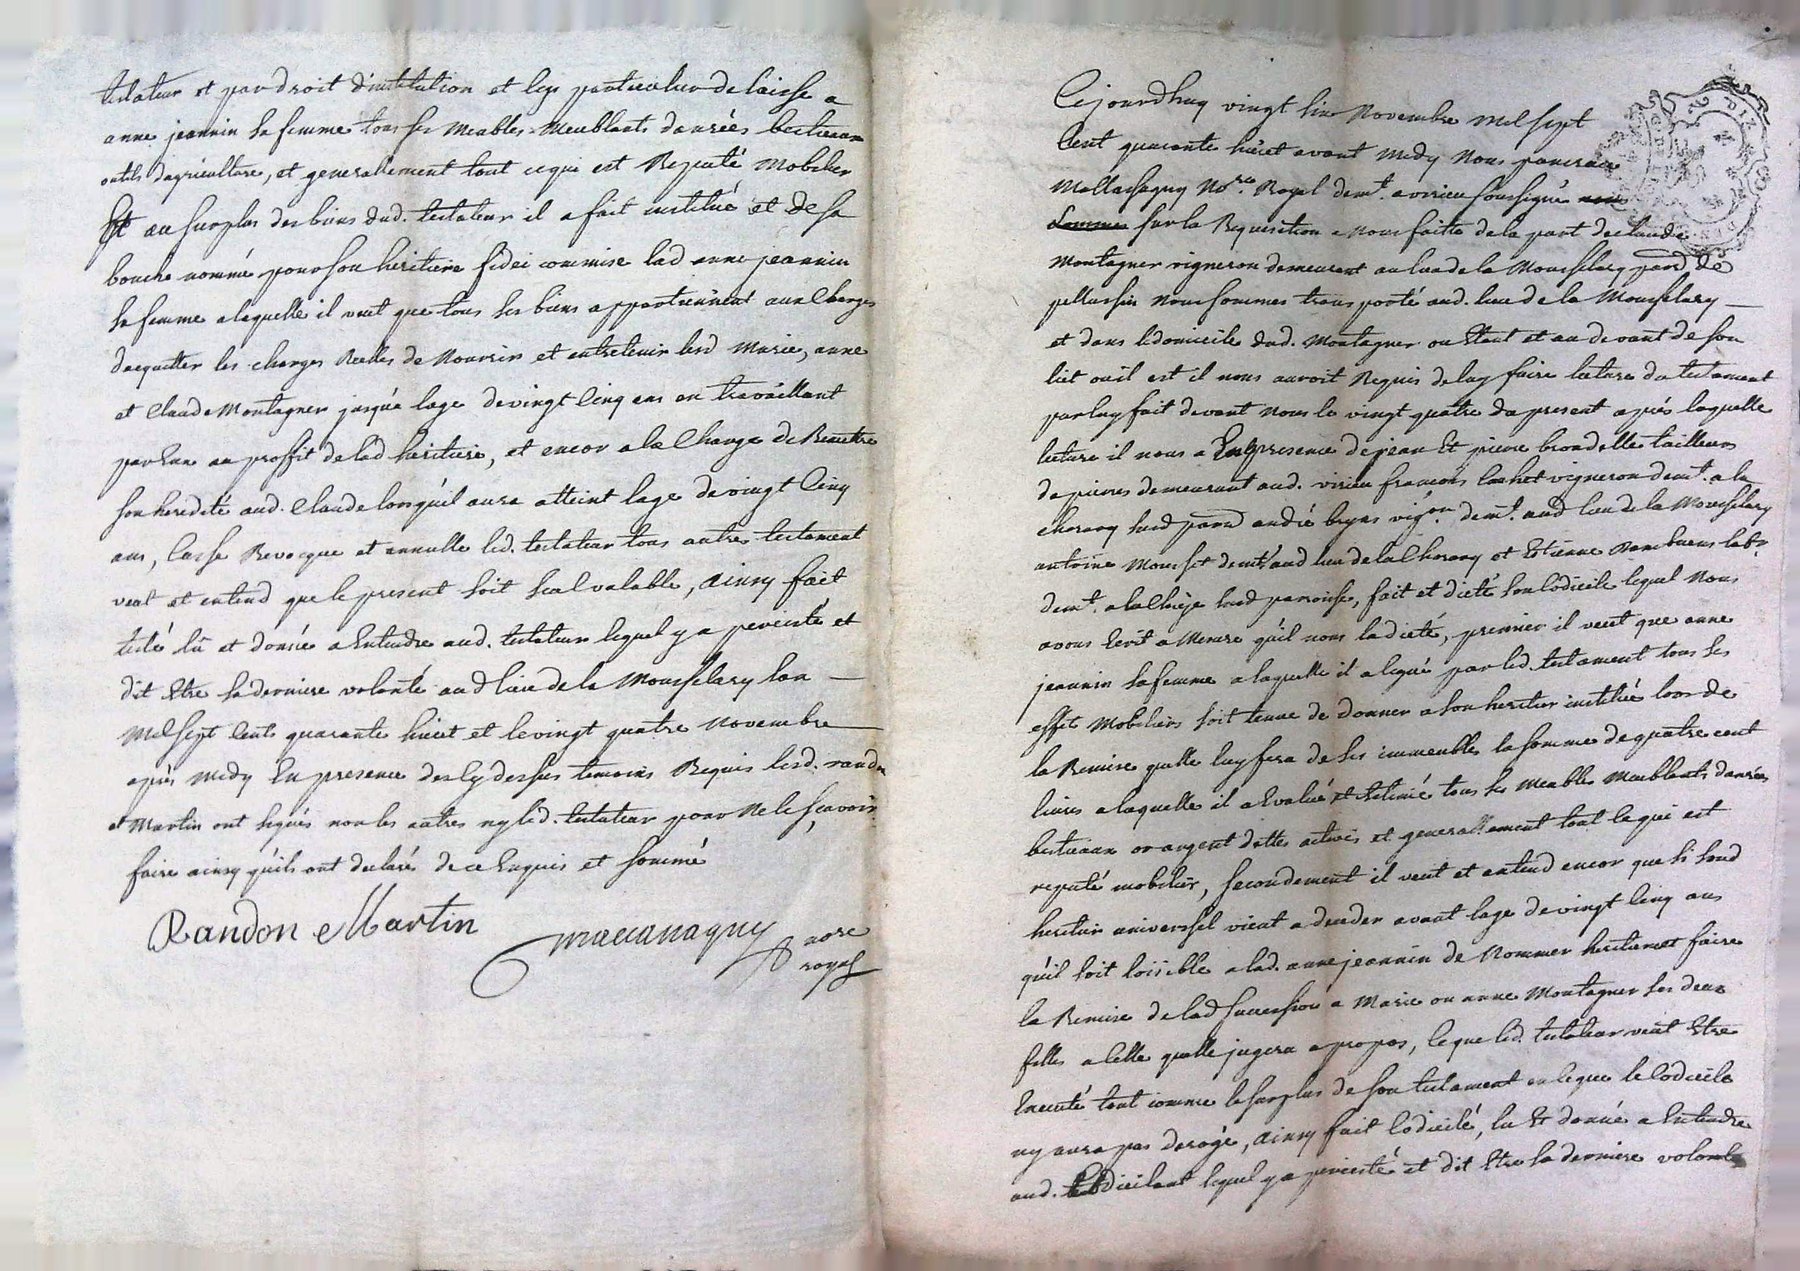 testateur et par droit d'institution et legs particulier delaisse a
anne jeannin sa femme tous ses meubles meublants danrées bestieaux
outils d'agriculture, et generallement tout ce qui est Reputé Mobilier
Et au surplus des biens dud. testateur il a fait institué et de sa
bouche nommé pour son heritiere fidei commise lad anne jeannin
sa femme a laquelle il veut que tous ses biens appartiennent aux Charges
dacquitter les charges Reelles de Nourrir et entretenir lesd Marie, anne
et Claude Montagner jusqu'a lage de vingt Cinq ans en travaillant
par Eux au proffit de lad heritiere, et encor a la Charge de Remettre
son heredité aud. Claude lorsqu'il aura atteint lage de vingt Cinq
ans, Casse Revocque et annulle led. testateur tous autres testament
veut et entend que le present soit seul valable, ainsy fait
testé lû et donné a Entendre aud. testateur lequel y a percisté et
dit Etre sa derniere volonté aud lieu de la Mousselary lan
Mil sept Cents quarante huict et le vingt quatre Novembre
apres midy En presence des cy dessus temoins Requis lesd. randon
et Martin ont signés non les autres ny led. testateur pour ne le sçavoir
faire ainsy qu'ils ont declarés de ce Enquis et sommé
Randon Martin
nore
royal
Cejourdhuy vingt six Novembre mil sept
Cent quarante huict avant midy Nous pancrace
Mallassagny No.re Royal demt. a virieu soussigné
sur la Requisition a Nous faitte de la part de claude
Montagner vigneron demeurant au lieu de la Mousselary parr de
pellussin nous sommes transporté aud. lieu de la Mousselary
et dans le domicile dud. Montagner ou Etant et au devant de son
lict ou il est il nous auroit Requis de luy faire lecture du testament
par luy fait devant Nous le vingt quatre du present apres laquelle
lecture il nous a En presence de jean Et pierre brondelle tailleurs
de pierres demeurant aud. virieu francois lachet vigneron demt. a la
chorary susd parr andré beyns vigon. demt. aud lieu de la Mousselary
antoine Mousset demt aud lieu de la Chorary et Etienne Rambaens labr.
demt. a la susd parroisse, fait et dicté son Codicile lequel Nous
avons Ecrit a Mesure qu'il nous la dicté, premier il veut que anne
jeannin sa femme a laquelle il a legué par led. testament tous ses
effets Mobiliers soit tenue de donner a son heritier institué lors de
la Remise quelle luy fera de ses immeuble la somme de quatre cent
livres a laquelle il a Evalué et Estimé tous ses Meubles Meublants danrées
bestieaux or argent dettes actives et generallement tout ce qui est
reputé mobilier, secondement il veut et entend encor que si sond
heritier universsel vient a deceder avant lage de vingt Cinq ans
qu'il soit loisible a lad. anne jeannin de Nommer heritier et faire
la Remise de lad succession a Marie ou anne Montagner ses deux
filles a Celle quelle jugera a propos, Ce que led. testateur veut Etre
Executé tout comme le surplus de son testament en ce que le Codicile
ny aura pas derogé, ainsy fait Codicilé, lu Et donné a Entendre
aud. Codicilant lequel y a percisté et dit Etre sa derniere volonté